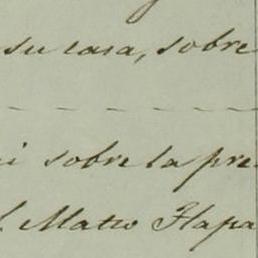 su casa, sobre
i sobre la pre
l. Mateo Hapa